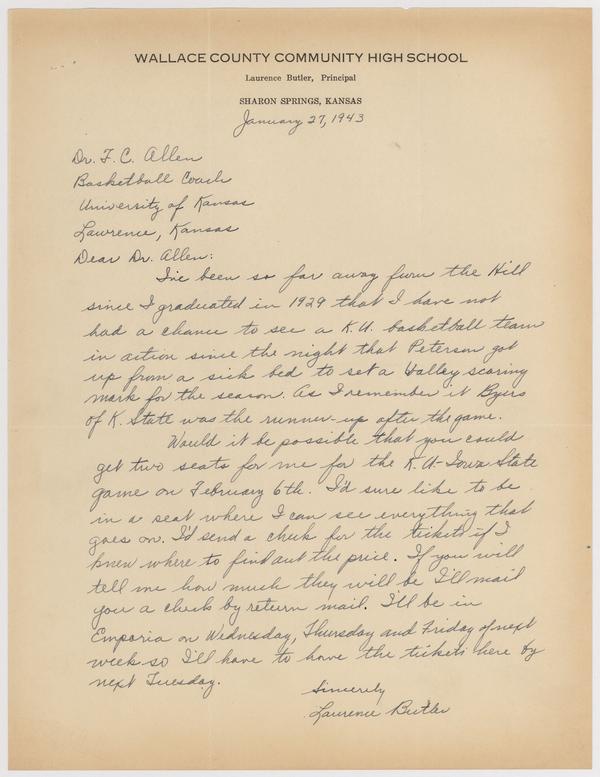 WALLACE COUNTY COMMUNITY HIGH SCHOOL
Laurence Butler, Principal
SHARON SPRINGS, KANSAS
January 27, 1943
Dr. F. C. Allen
Basketball Coach
University of Kansas
Lawrence, Kansas
Dear Dr. Allen:
I've been so far away from the Hill
since I graduated in 1929 that I have not
had a chance to see a K.U. basketball team
in action since the night that Peterson got
up from a sick bed to set a Valley scoring
mark for the season. As I remember it Byers
of K. State was the runner-up after the game.
Would it be possible that you could
get two seats for me for the K.U-Iowa State
game on February 6th. I'd sure like to be
in a seat where I can see everything that
goes on. I'd send a check for the tickets if I
knew where to find out the price. If you will
tell me how much they will be I'll mail
you a check by return mail. I'll be in
Emporia on Wednesday, Thursday and Friday of next
week so I'll have to have the tickets here by
next Tuesday.
Sincerely
Laurence Butler